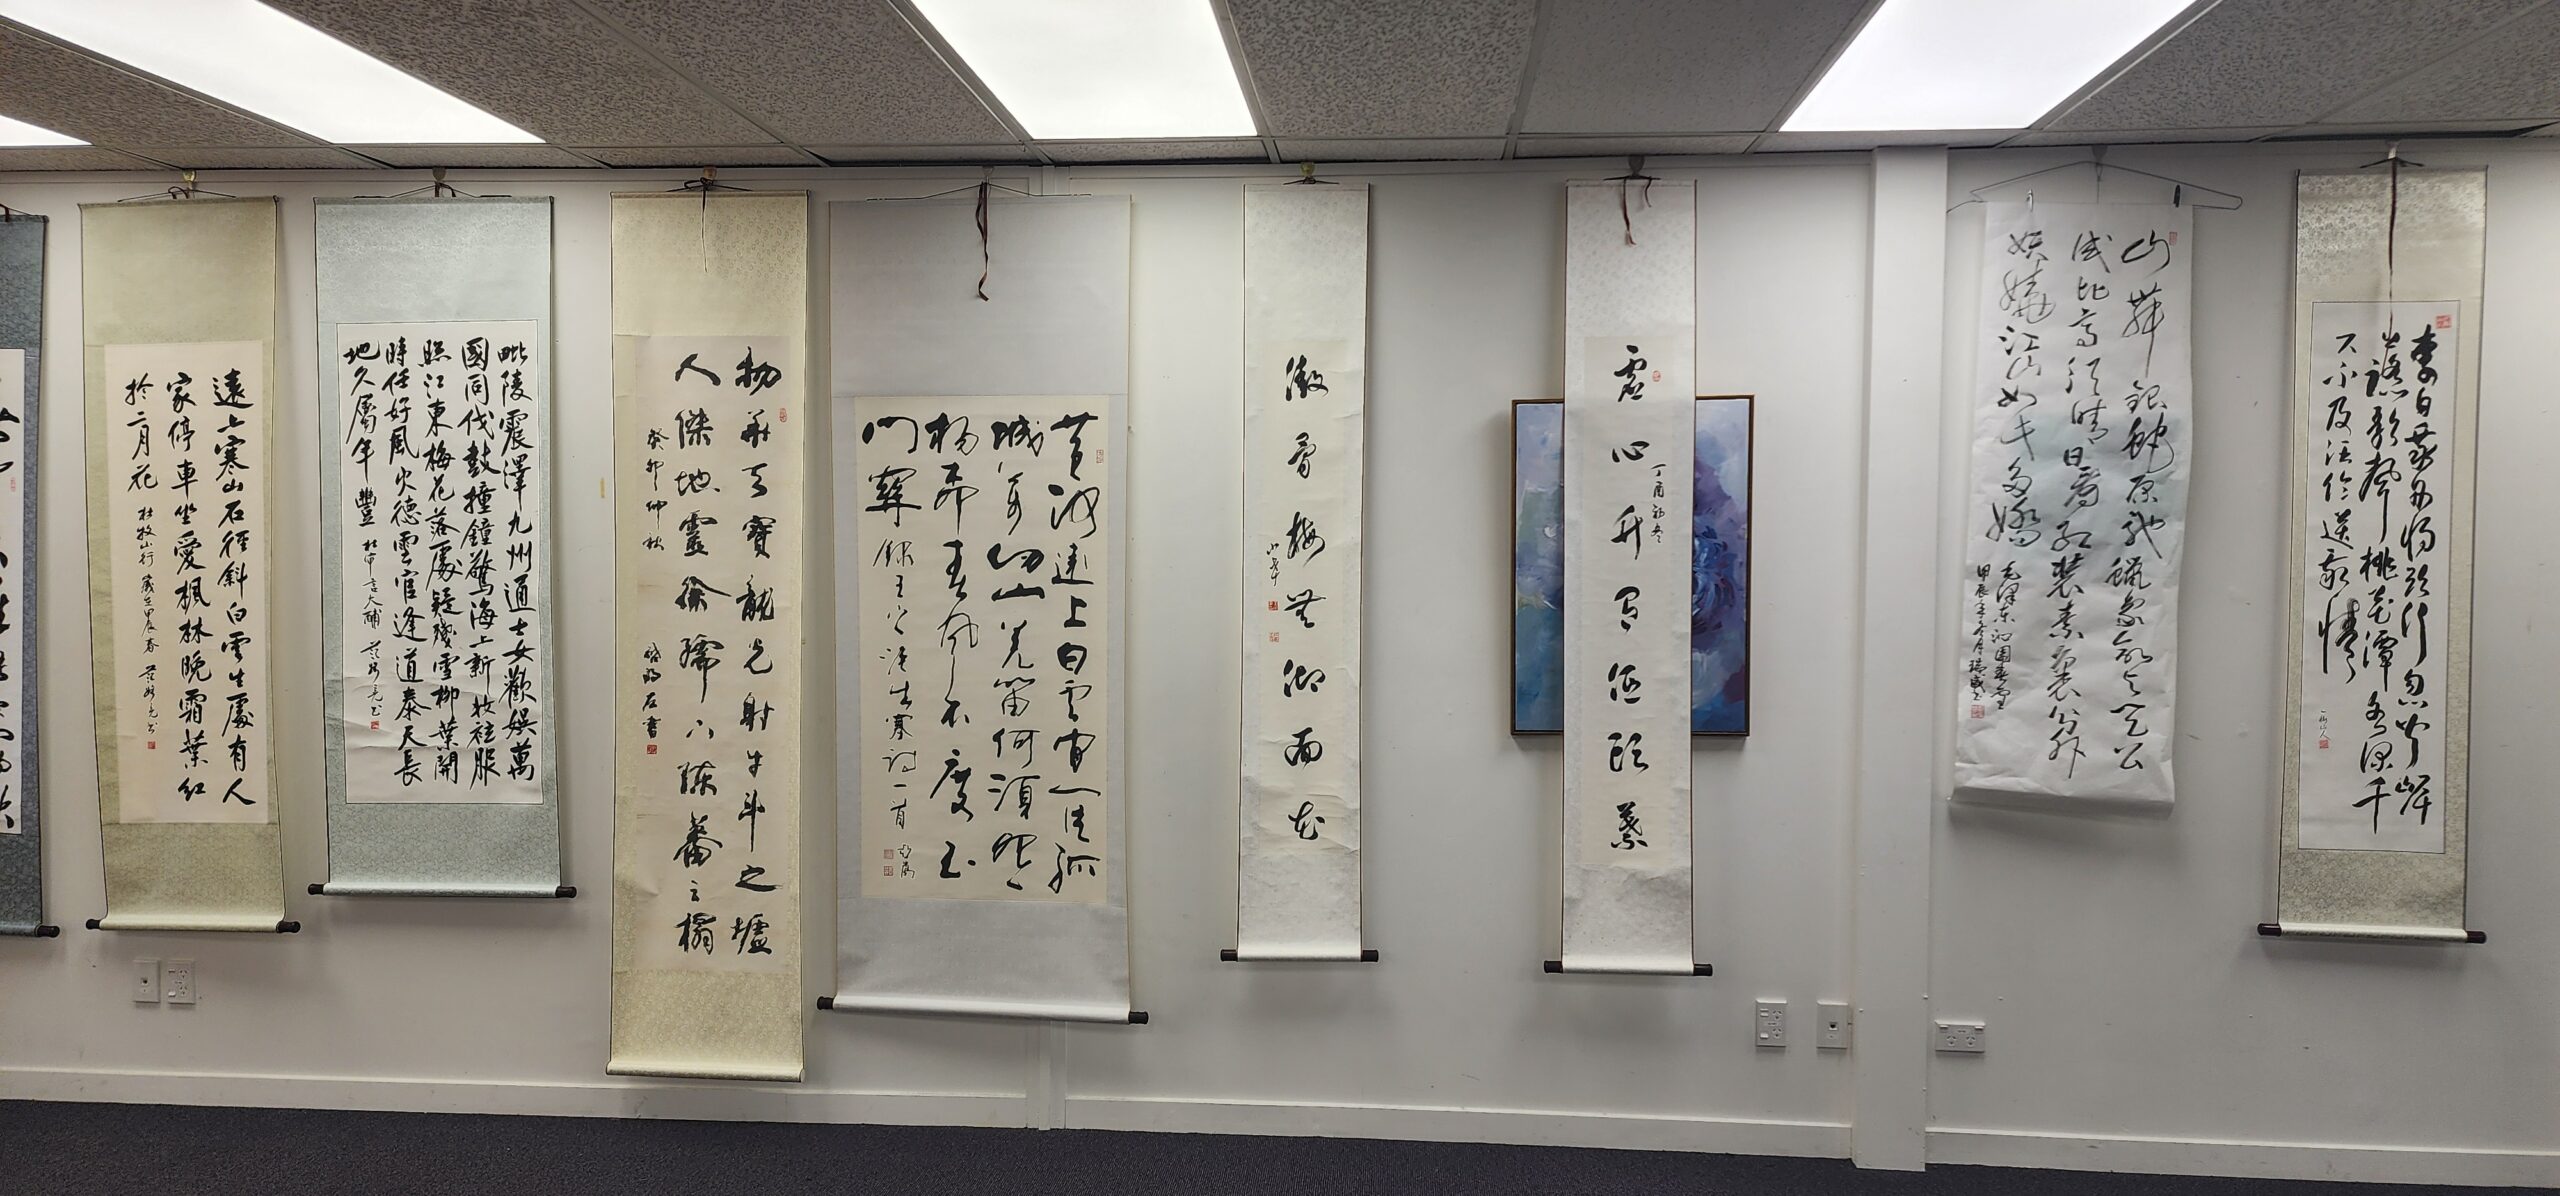 遠上寒山石徑斜白雲生處有人
家停車坐愛楓林晚霜葉紅
於二月花
杜牧山行 歲在甲辰春
毗陵震澤九州通士女歡娛萬
國同伐鼓撞鐘驚海上新妝袨服
照江東梅花落處疑殘雪柳葉開
時任好風火德雲官逢道泰天長
地久屬年豐 杜审言大酺
物華天寶龍光射牛斗之墟
人傑地靈徐孺下陳蕃之榻
癸卯仲秋
黃河遠上白雲間一片孤
城萬仞山羌笛何須怨
楊柳春風不度玉
門關 錄王之渙出塞詩一首
傲骨梅無仰面花
虛心竹有低頭葉
丁酉初冬
山舞銀蛇原馳蠟象欲与天公
试比高須晴日看紅裝素裹分外
妖嬈江山如此多嬌
毛澤東沁園春雪
李白乘舟將欲行忽聞岸
上踏歌聲桃花潭水深千
尺不及汪倫送我情